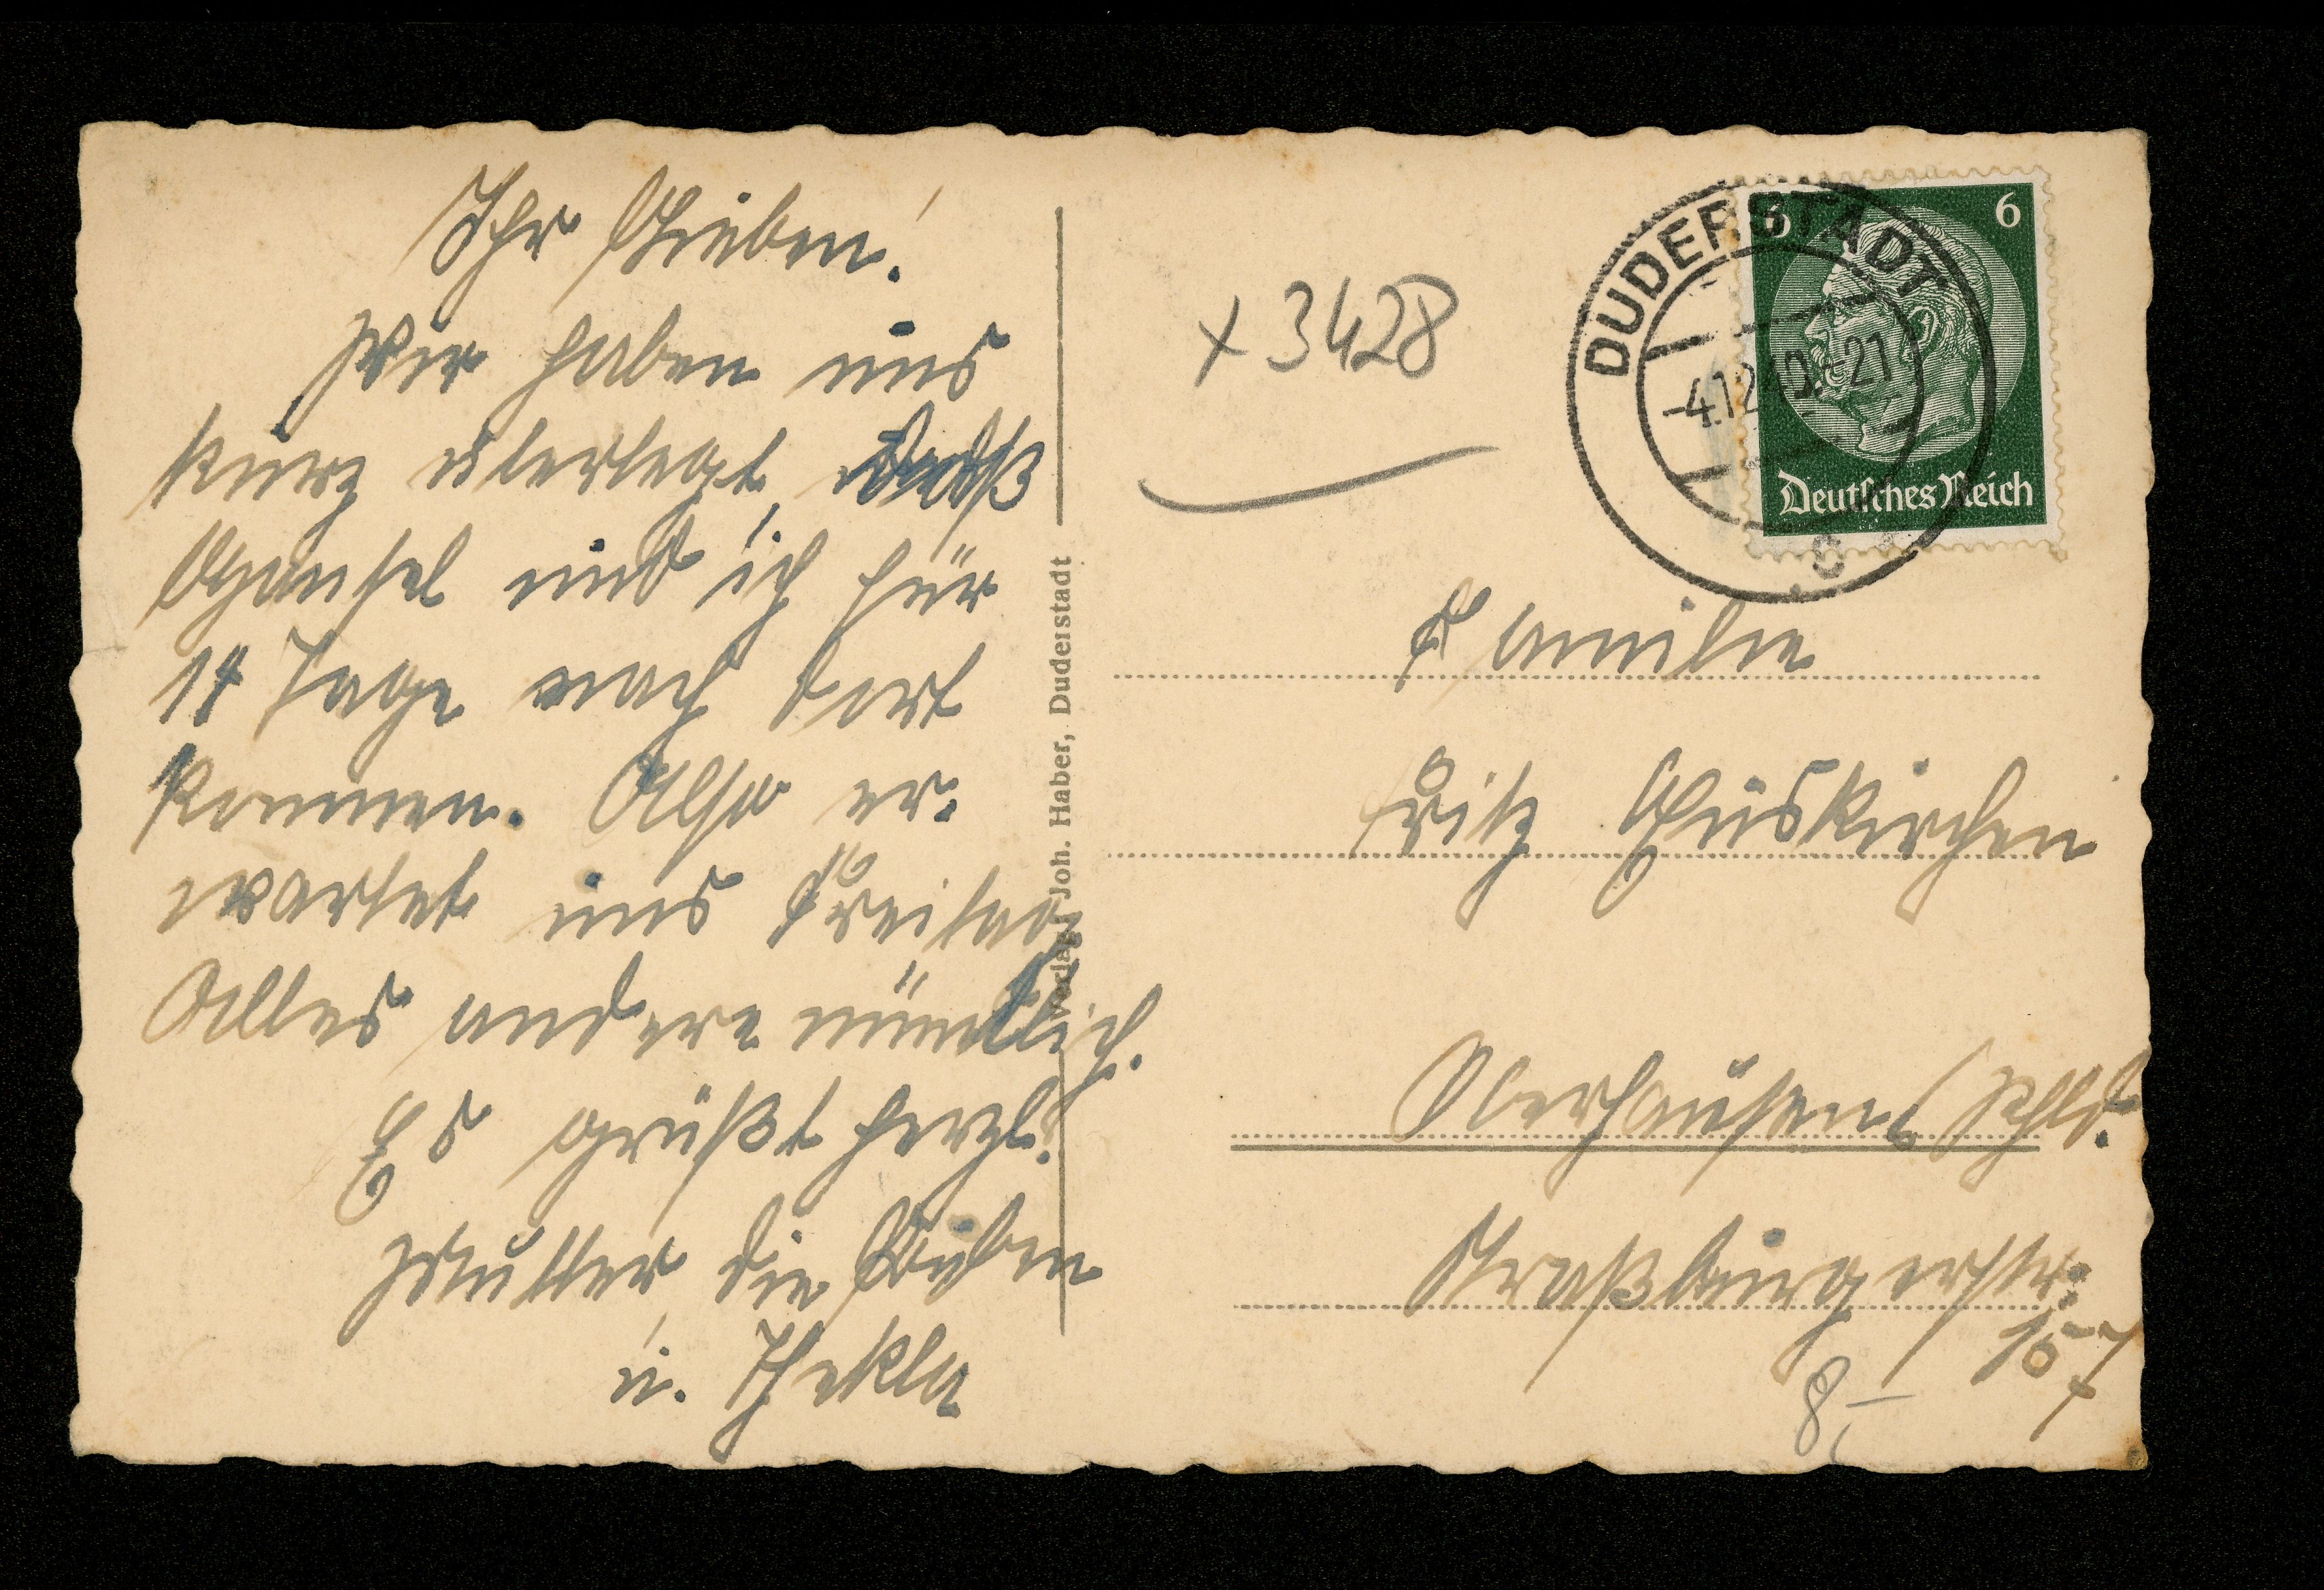 Ihr Lieben!
Wir haben uns
kurz überlegt, daß
und ich für
14 Tage nach dort
kommen. Also er-
wartet uns Freitag
Alles andere mündlich.
Es grüßt herzl.
Mutter, die Buben
u. Thekla
Verlag Joh. Haber, Duderstadt
x 3428
DUDERSTADT
-4.12.40.-21
c
6
6
Deutsches Reich
Familie
Fritz Euskirchen
Oberhausen, Rhld.
Straßburgerstr.